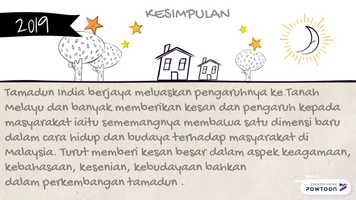 2019
KESIMPULAN
Tamadun India berjaya meluaskan pengaruhnya ke Tanah
Melayu dan banyak memberikan kesan dan pengaruh kepada
masyarakat iaitu sememangnya membawa satu dimensi baru
dalam cara hidup dan budaya terhadap masyarakat di
Malaysia. Turut memberi kesan besar dalam aspek keagamaan,
kebahasaan, kesenian, kebudayaan bahkan
dalam perkembangan tamadun .
POWTOON